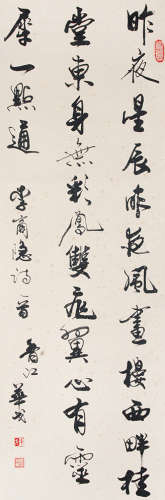 昨夜星辰昨夜風畫樓西畔桂
堂東身無彩鳳雙飛翼心有靈
犀一點通 李商隱詩一首 魯江 華成